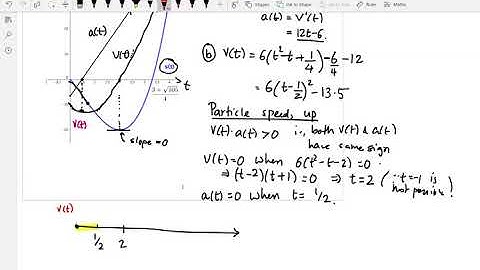 a(t) = v'(t)
= 12t-6.
a(t)
V(t)
s(t)
t
V(t)
slope = 0
(b) V(t) = 6(t²-t+1/4)-6/4-12
= 6(t-1/2)²-13.5
Particle speeds up
V(t)·a(t)>0 i.e., both V(t) & a(t)
have same sign
V(t)=0 when 6(t²-t-2)=0
⇒(t-2)(t+1)=0 ⇒ t=2 (∵t=-1 is
not possible!)
a(t)=0 when t= 1/2.
V(t)
1/2 2